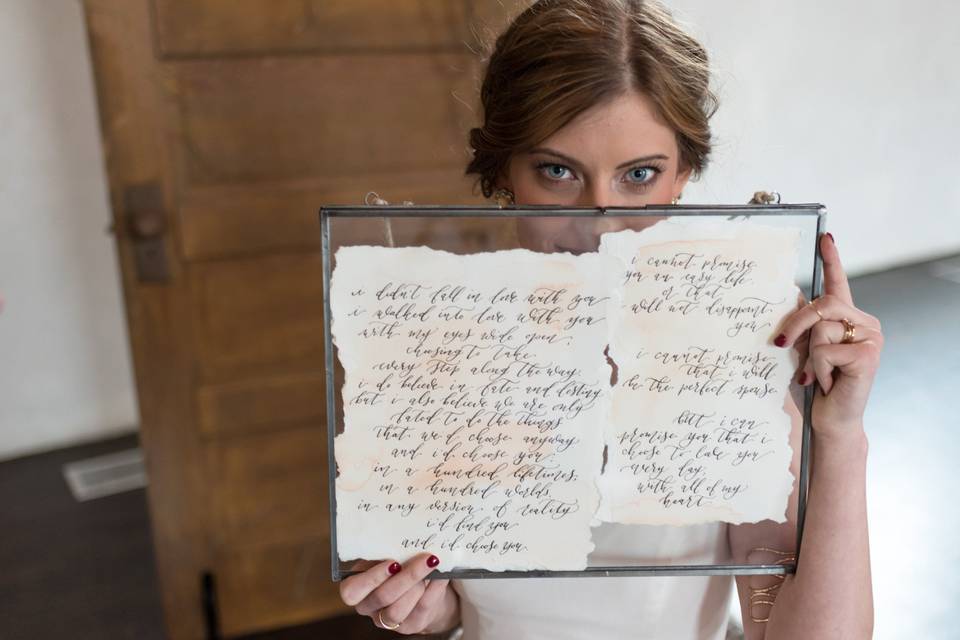 i didn't fall in love with you
i walked into love with you
with my eyes wide open,
choosing to take
every step along the way.
i do believe in fate and destiny
but i also believe we are only
fated to do the things
that we'd choose anyway
and i'd choose you;
in a hundred lifetimes,
in a hundred worlds,
in any version of reality
i'd find you
and i'd choose you.
i cannot promise
you an easy life
or that i
will not disappoint
you
i cannot promise
that i will
be the perfect spouse.
but i can
promise you that i
choose to love you
every day,
with all of my
heart